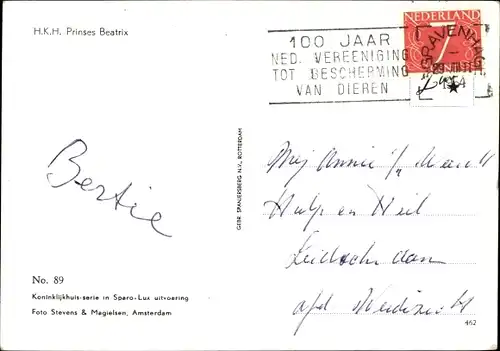 H.K.H. Prinses Beatrix
100 JAAR
NED. VEREENIGING
TOT BESCHERMING
VAN DIEREN
'S GRAVENHAGE
1954
NEDERLAND
Bertie
GEBR SPANJERSBERG N.V., ROTTERDAM
Mej Annie
Hulp en Heil
Leidschendam
afd
No. 89
Koninklijkhuis-serie in Sparo-Lux uitvoering
Foto Stevens & Magielsen, Amsterdam
462